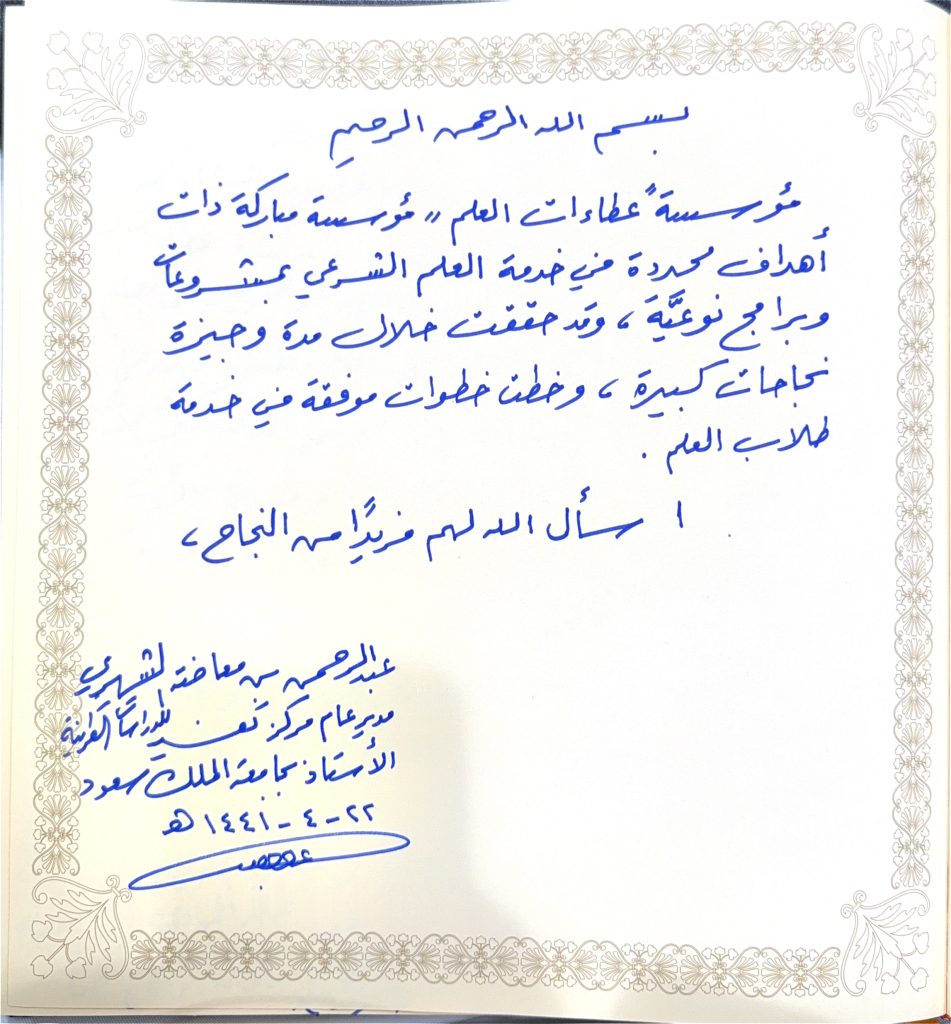 بسم الله الرحمن الرحيم
مؤسسة "عطاءات العلم" مؤسسة مباركة ذات
أهداف محددة في خدمة العلم الشرعي بمشروعات
وبرامج نوعيَّة، وقد حققت خلال مدة وجيزة
نجاحات كبيرة، وخطت خطوات موفقة في خدمة
طلاب العلم.
أسأل الله لهم مزيدًا من النجاح،
عبدالرحمن بن معاضة الشهري
مدير عام مركز تفسير للدراسات القرآنية
الأستاذ بجامعة الملك سعود
٢٢-٤-١٤٤١هـ